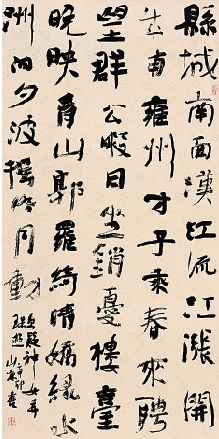 縣城南面漢江流江漲開
成南雍州才子乘春來騁
望群公暇日坐銷憂樓臺
晚映青山郭羅綺晴嬌綠水
洲向夕波搖明月動更疑神女弄
珠遊